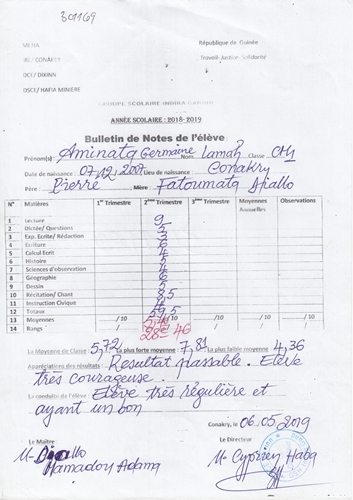 301169
République de Guinée
IRE/ CONAKRY
Travail-Justice-Solidarité
DCE/ DIXINN
DSCE/ HAFIA MINIERE
GROUPE SCOLAIRE
ANNÉE SCOLAIRE : 2018-2019
Bulletin de Notes de l'élève
Prénom(s) : Aminata Germaine Nom: Lamah Classe : CM
Date de naissance : 07/12/2007 Lieu de naissance : Conakry
Père : Pierre Mère : Fatoumata Diallo
N° Matières 1er Trimestre 2ème Trimestre 3ème Trimestre Moyennes Annuelles Observations
1 Lecture 9
2 Dictée/ Questions 5
3 Exp. Ecrite/ Rédaction 3
4 Ecriture 6
5 Calcul Ecrit 4
6 Histoire 5
7 Sciences d'observation 4
8 Géographie 6
9 Dessin 5
10 Récitation/ Chant 8,5
11 Instruction Civique 4
12 Totaux 59,5
13 Moyennes / 10 / 10 / 10 / 10
14 Rangs / 28e 46 / /
La Moyenne de Classe : 5,72 La plus forte moyenne : 7,81 La plus faible moyenne : 4,36
Appréciations des résultats : Resultat passable. Elève
très courageuse.
La conduite de l'élève : Elève très régulière et
ayant un bon
Conakry, le 06.05.2019
Le Maître Le Directeur
M. Diallo M. Cyprien Haba
Mamadou Adama